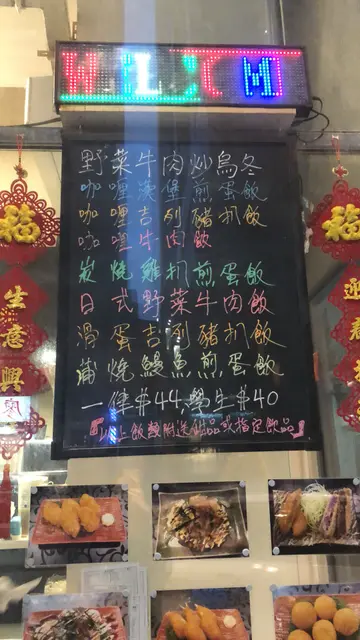 WELCOM
野菜牛肉炒烏冬
咖喱漢堡煎蛋飯
咖喱吉列豬扒飯
咖喱牛肉飯
炭燒雞扒煎蛋飯
日式野菜牛肉飯
滑蛋吉列豬扒飯
蒲燒鰻魚煎蛋飯
一律$44,鴛牛$40
以上飯類附送甜品或指定飲品
福
生意興
福
迎